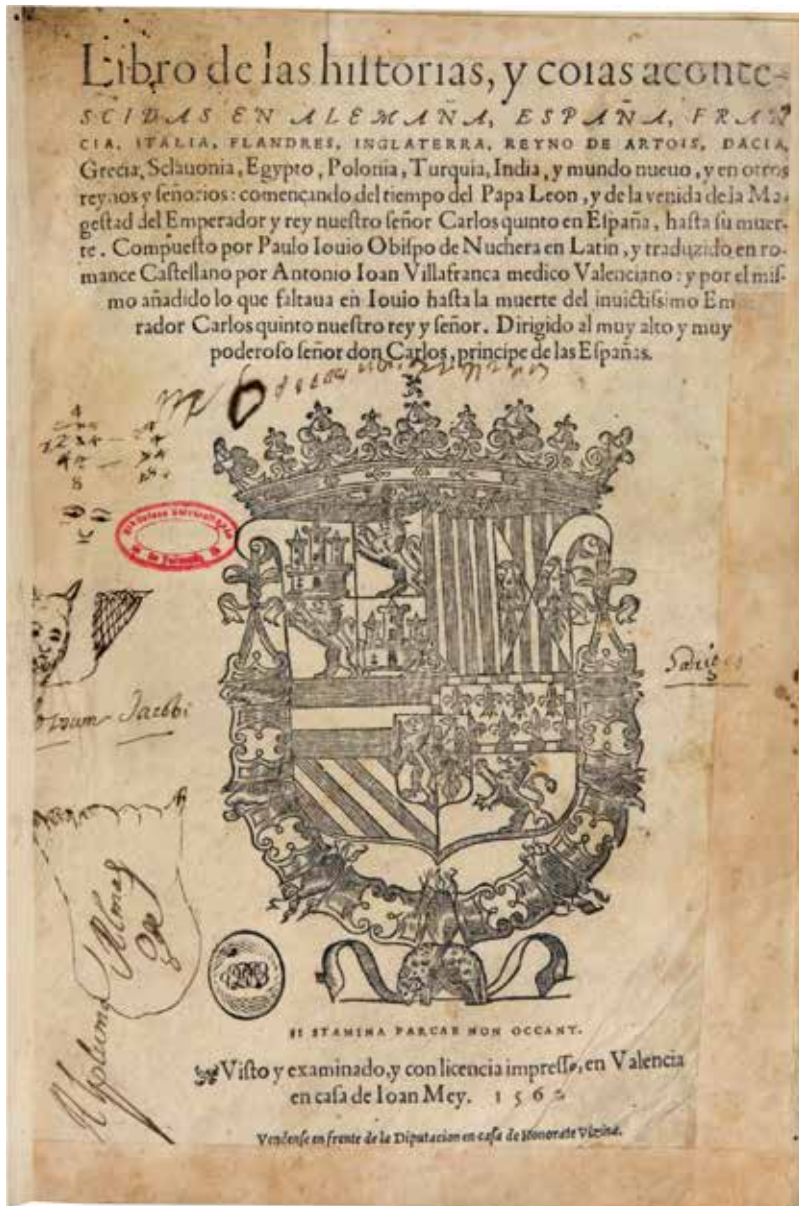 Libro de las hiſtorias, y coſas aconte-
SCIDAS EN ALEMAÑA, ESPAÑA, FRAN
CIA, ITALIA, FLANDRES, INGLATERRA, REYNO DE ARTOIS, DACIA,
Grecia, Sclauonia, Egypto, Polonia, Turquia, India, y mundo nueuo, y en otros
reynos y ſeñorios: començando del tiempo del Papa Leon, y de la venida de la Ma-
geſtad del Emperador y rey nueſtro ſeñor Carlos quinto en Eſpaña, haſta ſu muer-
te. Compueſto por Paulo Iouio Obiſpo de Nuchera en Latin, y traduzido en ro-
mance Caſtellano por Antonio Ioan Villafranca medico Valenciano: y por el miſ-
mo añadido lo que faltaua en Iouio haſta la muerte del inuictiſsimo Em
rador Carlos quinto nueſtro rey y ſeñor. Dirigido al muy alto y muy
poderoſo ſeñor don Carlos, principe de las Eſpañas.
Jacobi
SI STAMINA PARCAE NON OCCANT.
Viſto y examinado, y con licencia impreſſo, en Valencia
en caſa de Ioan Mey. 156
Vendenſe en frente de la Diputacion en caſa de Honorate